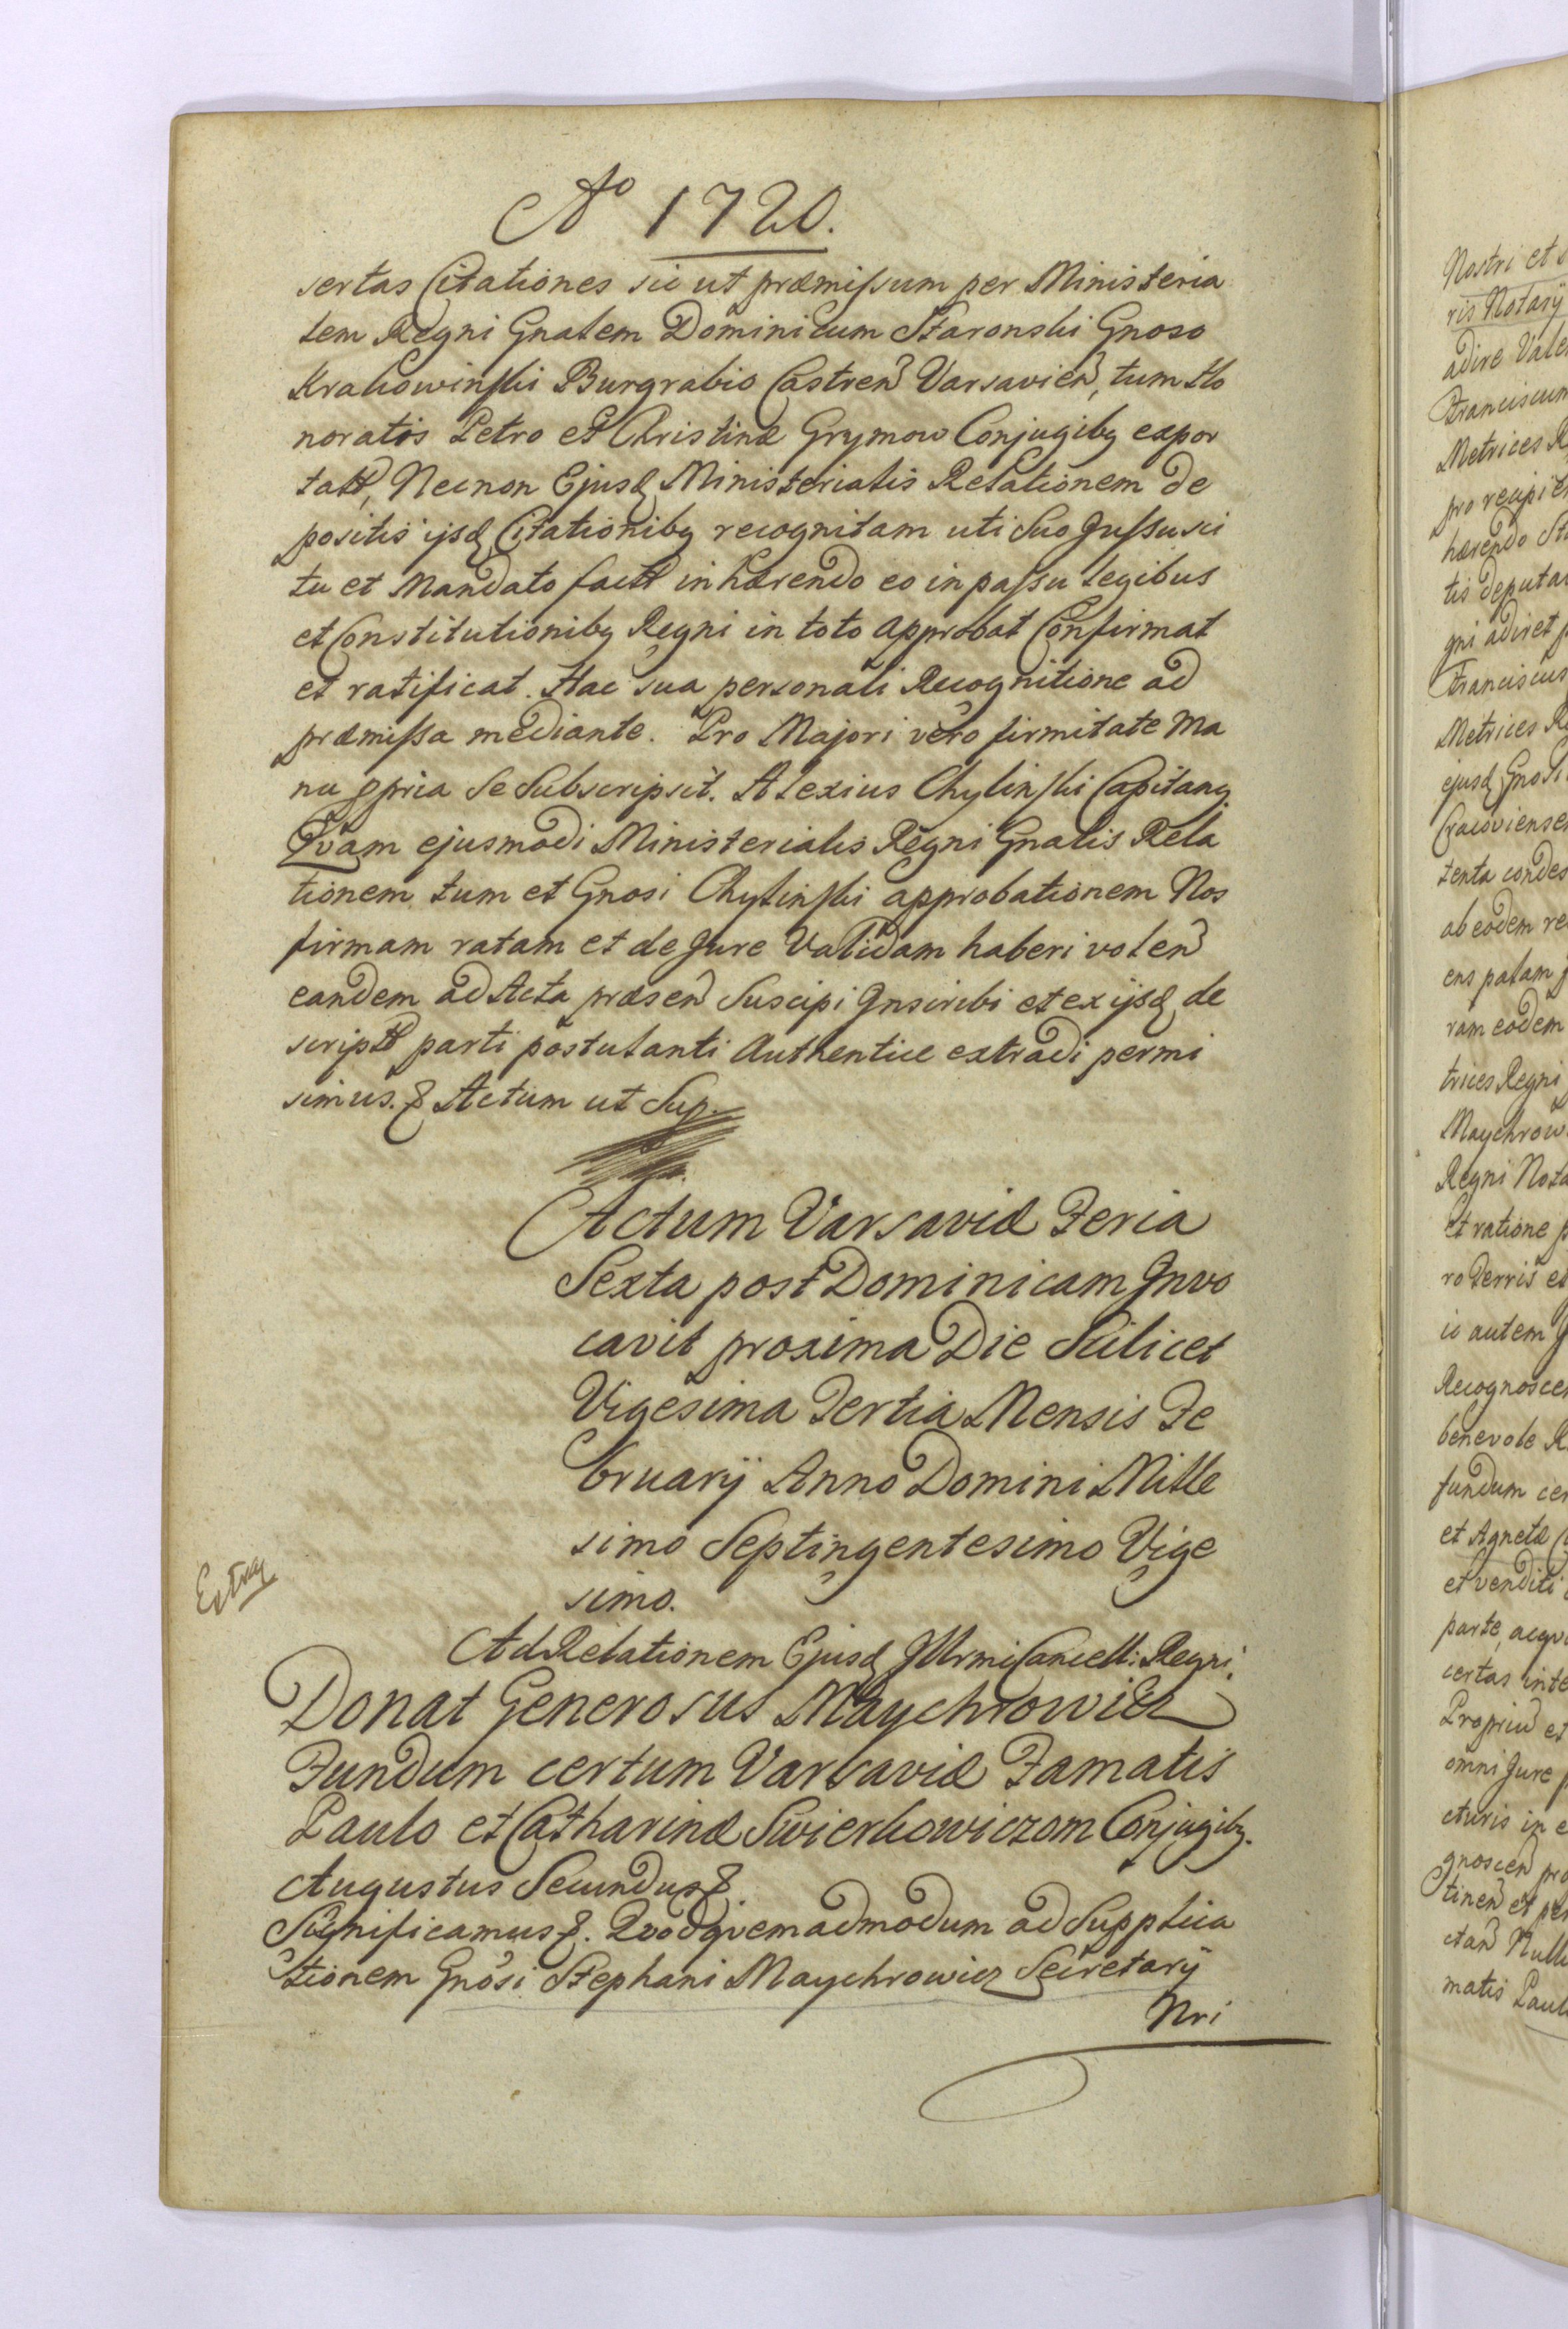 Ao 1720.
sertas Citationes sic ut præmissum per Ministeria
lem Regni Gnalem Dominicum Staronski Gnoso
Krakowinski Burgrabio Castren Varsavien, tum Ho
noratis Petro et Christinæ Grymow Conjugibq expor
tatt, Necnon Ejusq Ministerialis Relationem de
positis ijsq Citationibq recognitam uti Suo Jussu sci
tu et Mandato fact inhærendo eo in passu legibus
et Constitutionibq Regni in toto approbat Confirmat
et ratificat. Hac sua personali Recognitione ad
præmissa mediante. Pro Majori vero firmitate Ma
nu ppria Se Subscripsit. Alexius Chylinski Capitanq.
Qvam ejusmodi Ministerialis Regni Gnalis Rela
tionem tum et Gnosi Chylinski approbationem Nos
firmam ratam et de Jure Validam haberi volen
eandem ad Acta præsen Suscipi Inscribi et ex ijsq de
script parti postulanti Authentice extradi permi
simus. & Actum ut Sup.
Actum Varsaviæ Feria
Sexta post Dominicam Invo
cavit proxima Die Scilicet
Vigesima Tertia Mensis Fe
bruarij Anno Domini Mille
simo Septingentesimo Vige
simo.
Ad Relationem Ejusq Illrmi Cancell: Regni.
Donat Generosus Maychrowicz
Fundum certum Varsaviæ Famatis
Paulo et Catharinæ Swierkowiczom Conjugibq.
Augustus Secundus &.
Significamus &. Qvod qvemadmodum ad Supplica
tionem Gnosi Stephani Maychrowicz Secretarij
Nri
Nostri et
ris Notarij
adire Vale
Franciscum
Metrices R
pro recipie
hærendo St
tis deputa
gni adivet
Franciscus
Metrices Re
ejusq Gnosi
Cracoviense
tenta condes
ab eodem re
ens palam
ram eodem
trices Regni
Maychrow
Regni Nota
et ratione p
ro Terris et
io autem
Recognosce
benevole R
fundum cer
et Agnetæ
et venditi
parte, acqv
certas inte
Propriu et
omni Jure
cturis in e
gnoscen pro
tinen et per
ctan Null
matis Paul